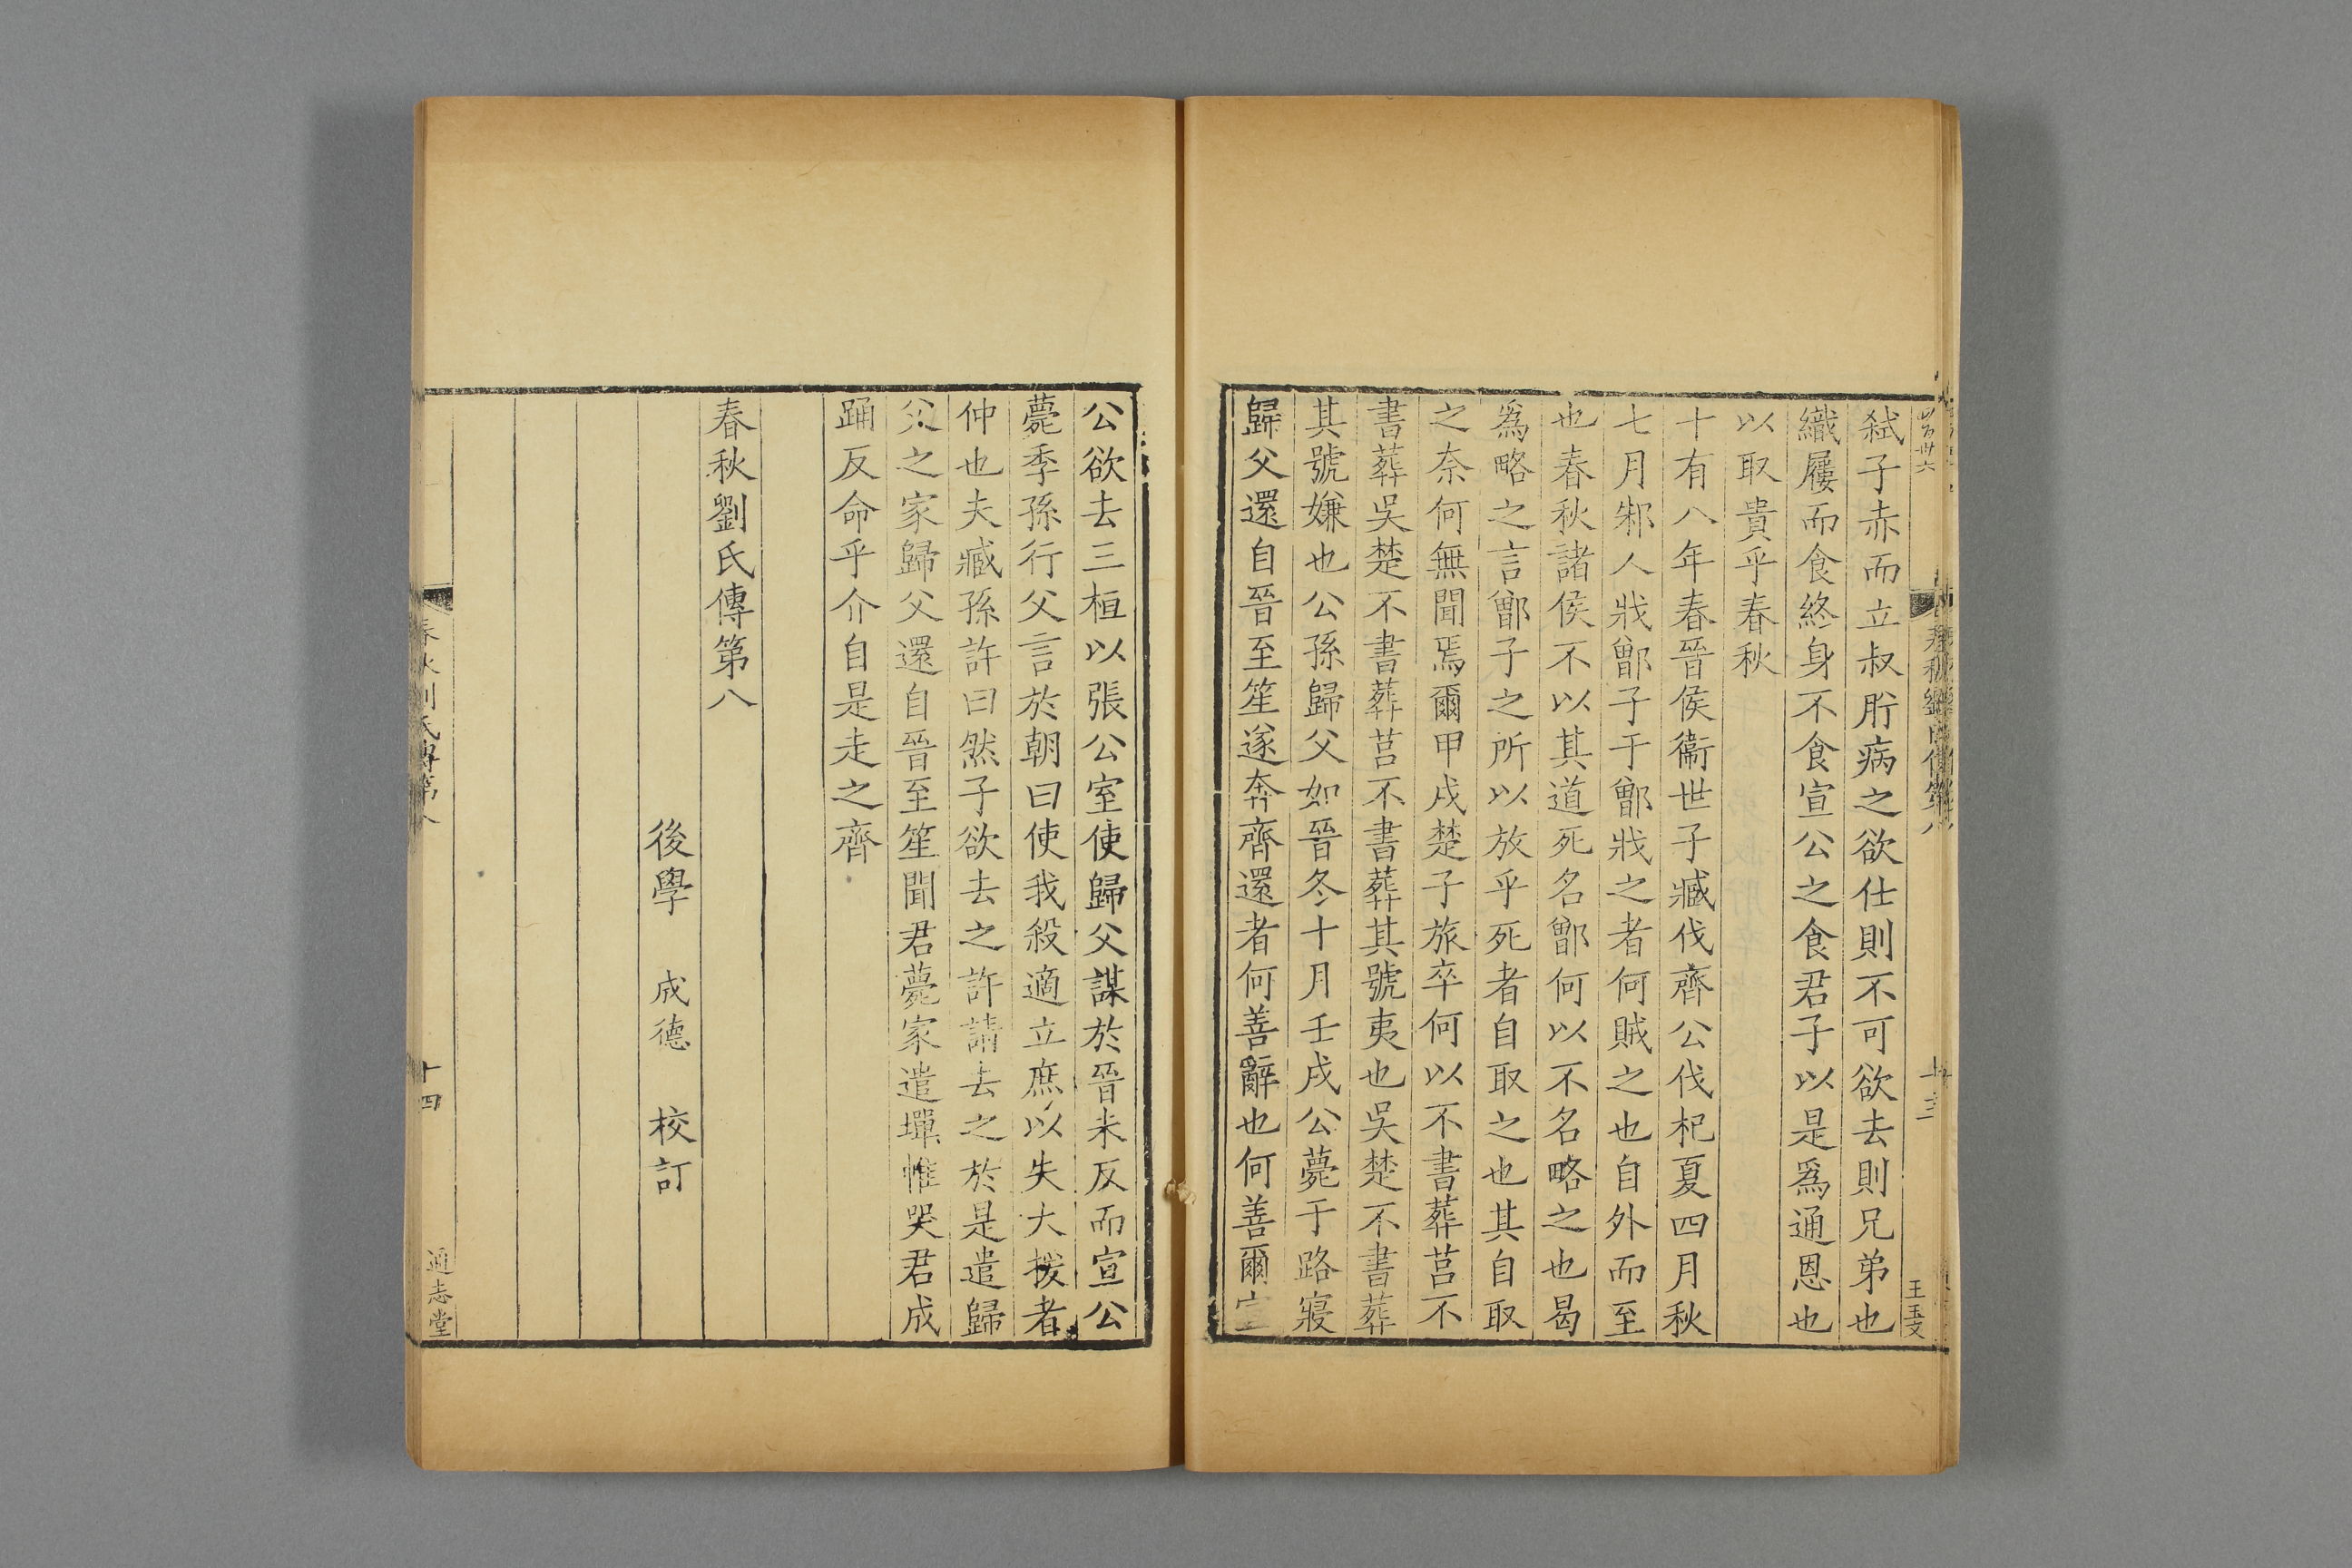 弑子赤而立叔肸病之欲仕則不可欲去則兄弟也
織屨而食終身不食宣公之食君子以是爲通恩也
以取貴乎春秋
十有八年春晉侯衞世子臧伐齊公伐杞夏四月秋
七月邾人戕鄫子于鄫戕之者何賊之也自外而至
也春秋諸侯不以其道死名鄫何以不名略之也曷
爲略之言鄫子之所以放乎死者自取之也其自取
之奈何無聞焉爾甲戌楚子旅卒何以不書葬莒不
書葬吳楚不書葬莒不書葬其號夷也吳楚不書葬
其號嫌也公孫歸父如晉冬十月壬戌公薨于路寢
歸父還自晉至笙遂奔齊還者何善辭也何善爾宣
公欲去三桓以張公室使歸父謀於晉未反而宣公
薨季孫行父言於朝曰使我殺適立庶以失大援者
仲也夫臧孫許曰然子欲去之許請去之於是遣歸
父之家歸父還自晉至笙聞君薨家遣墠帷哭君成
踊反命乎介自是走之齊
春秋劉氏傳第八
後學 成德 校訂
春秋劉氏傳第八
十四
通志堂